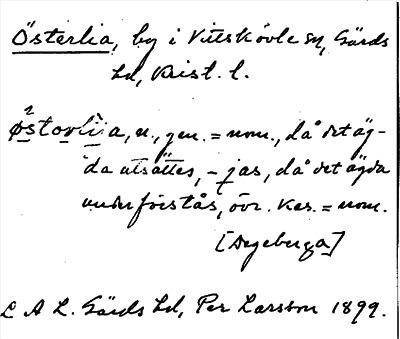 Österlia, by i Vittskövle sn, Gärds
hd, Krist. l.
østovlia, n., gen. = nom., då det äg-
da utsättes, -jas, då det ägda
underförstås, övr. kas. = nom.
[Degeberga]
L A L. Gärds hd, Per Larsson 1899.